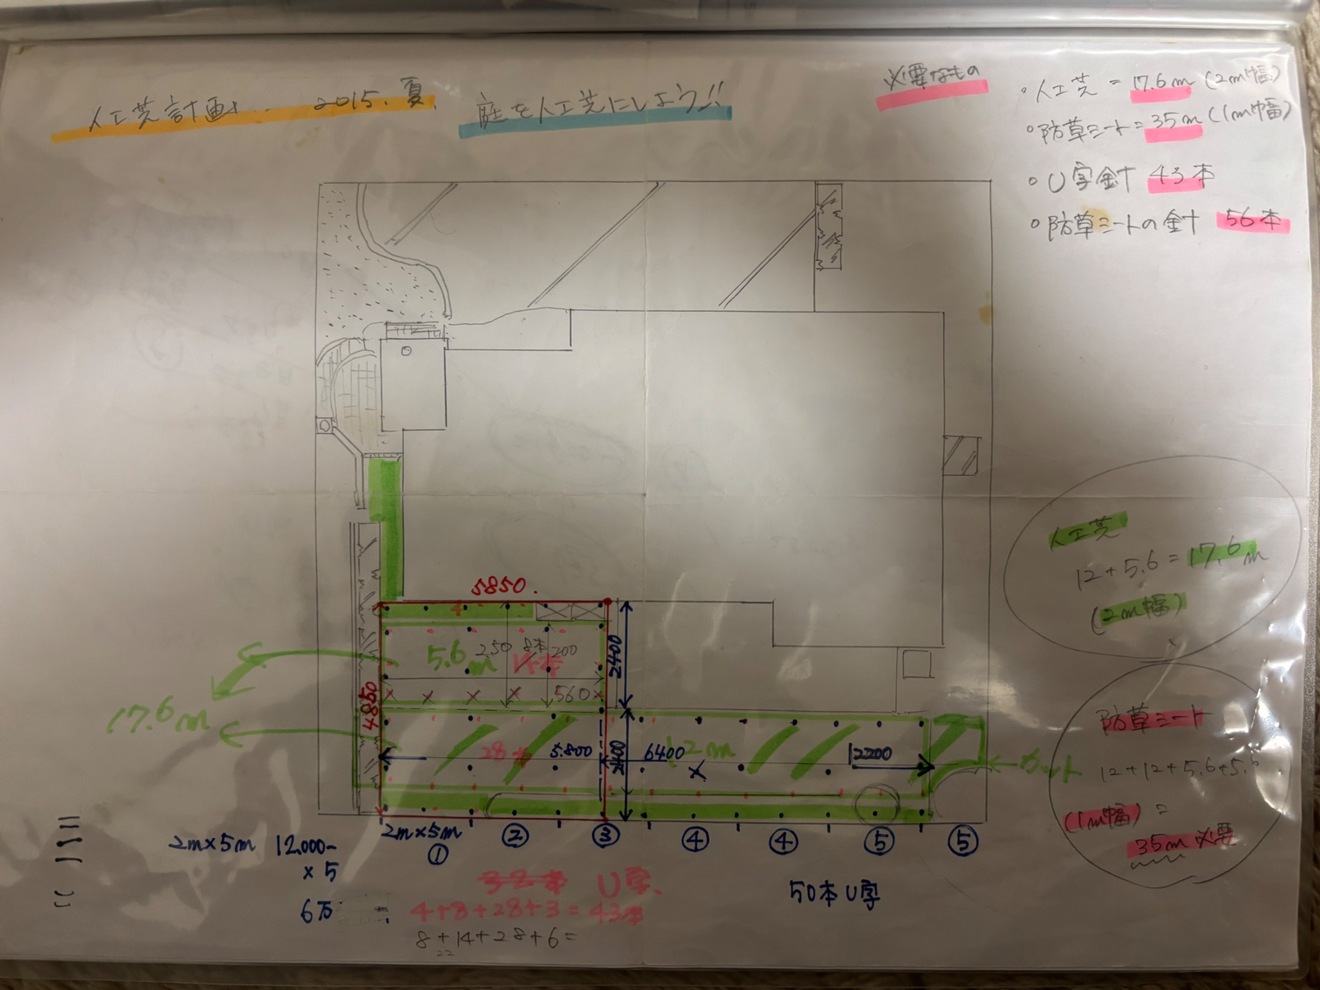 人工芝計画！... 2015.夏
庭を人工芝にしよう!!
必要なもの
○人工芝 = 17.6m (2m幅)
○防草シート = 35m (1m幅)
○U字釘 43本
○防草シートの釘 56本
5850.
4850
5.6m
250
8本
200
560
2400
17.6m
28本
5.800
2400
6400
12m
12200
カット
人工芝
12+5.6=17.6m
(2m幅)
防草シート
12+12+5.6+5.6
(1m幅) =
35m必要
2m×5m
① ② ③ ④ ④ ⑤ ⑤
2m×5m 12,000-
×5
6万
38本 U字
4+8+28+3=43本
8+14+28+6=
22
50本U字